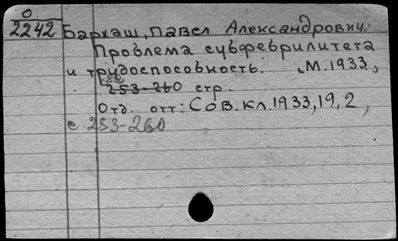 О
2242 Бархаш, Павел Александрович.
Проблема субфебрилитета
и трудоспособность. М. 1933,
253-260 стр.
Отд. отт: Сов. кл. 1933, 19, 2,
с. 253-260